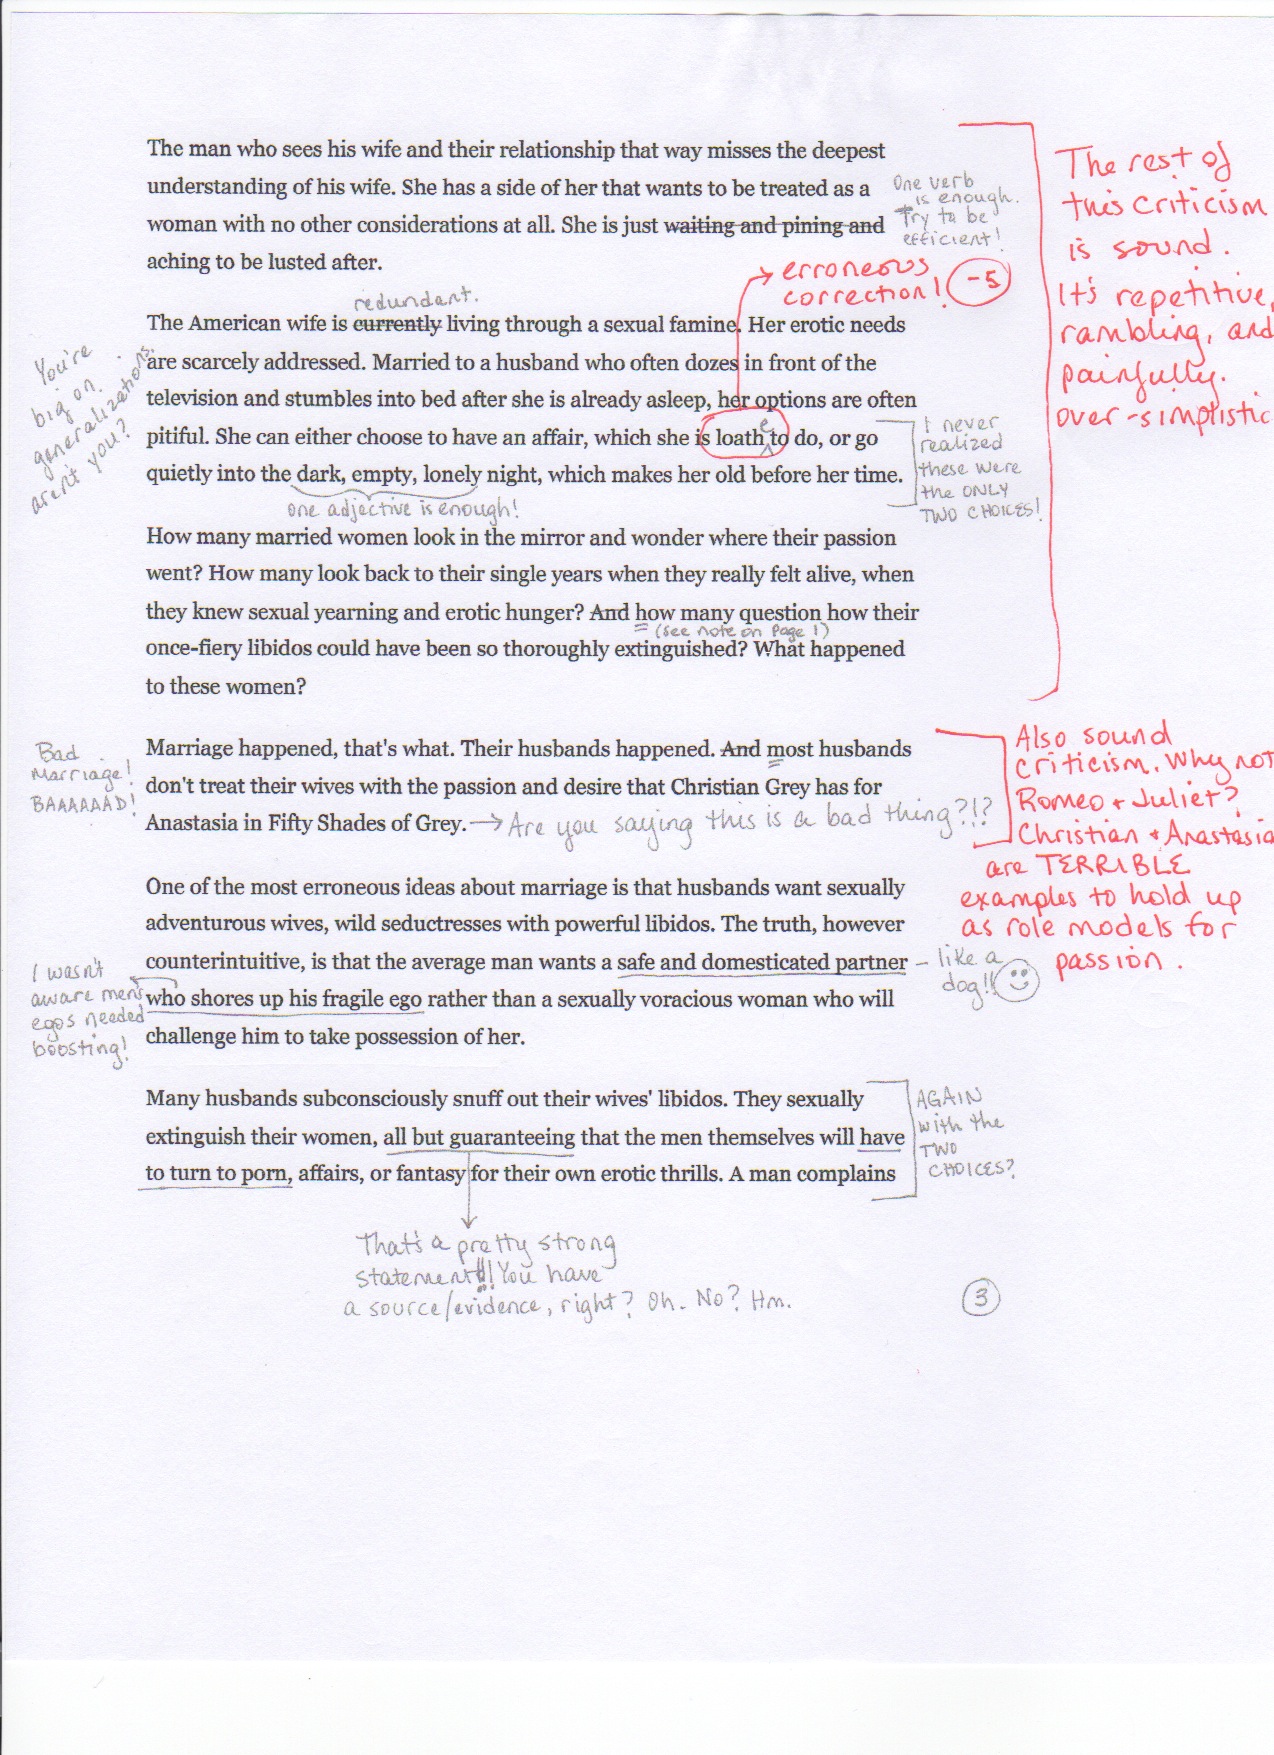 The man who sees his wife and their relationship that way misses the deepest
understanding of his wife. She has a side of her that wants to be treated as a
woman with no other considerations at all. She is just waiting and pining and
aching to be lusted after.
One verb
is enough.
Try to be
efficient!
erroneous
correction!
-5
The rest of
this criticism
is sound.
It's repetitive,
rambling, and
painfully
over-simplistic
redundant.
The American wife is currently living through a sexual famine. Her erotic needs
are scarcely addressed. Married to a husband who often dozes in front of the
television and stumbles into bed after she is already asleep, her options are often
e
pitiful. She can either choose to have an affair, which she is loath to do, or go
quietly into the dark, empty, lonely night, which makes her old before her time.
one adjective is enough!
You're
big on
generalizations,
aren't you?
I never
realized
these were
the ONLY
TWO CHOICES!
How many married women look in the mirror and wonder where their passion
went? How many look back to their single years when they really felt alive, when
they knew sexual yearning and erotic hunger? And how many question how their
(see note on page 1)
once-fiery libidos could have been so thoroughly extinguished? What happened
to these women?
Bad
Marriage!
BAAAAAAD!
Marriage happened, that's what. Their husbands happened. And most husbands
don't treat their wives with the passion and desire that Christian Grey has for
Anastasia in Fifty Shades of Grey.
Are you saying this is a bad thing?!?
Also sound
criticism. Why not
Romeo + Juliet?
Christian + Anastasia
are TERRIBLE
examples to hold up
as role models for
passion.
One of the most erroneous ideas about marriage is that husbands want sexually
adventurous wives, wild seductresses with powerful libidos. The truth, however
counterintuitive, is that the average man wants a safe and domesticated partner
who shores up his fragile ego rather than a sexually voracious woman who will
challenge him to take possession of her.
– like a
dog!!
I wasn't
aware men's
egos needed
boosting!
Many husbands subconsciously snuff out their wives' libidos. They sexually
extinguish their women, all but guaranteeing that the men themselves will have
to turn to porn, affairs, or fantasy for their own erotic thrills. A man complains
AGAIN
with the
TWO
CHOICES?
That's a pretty strong
statement!! You have
a source/evidence, right? Oh. No? Hm.
3